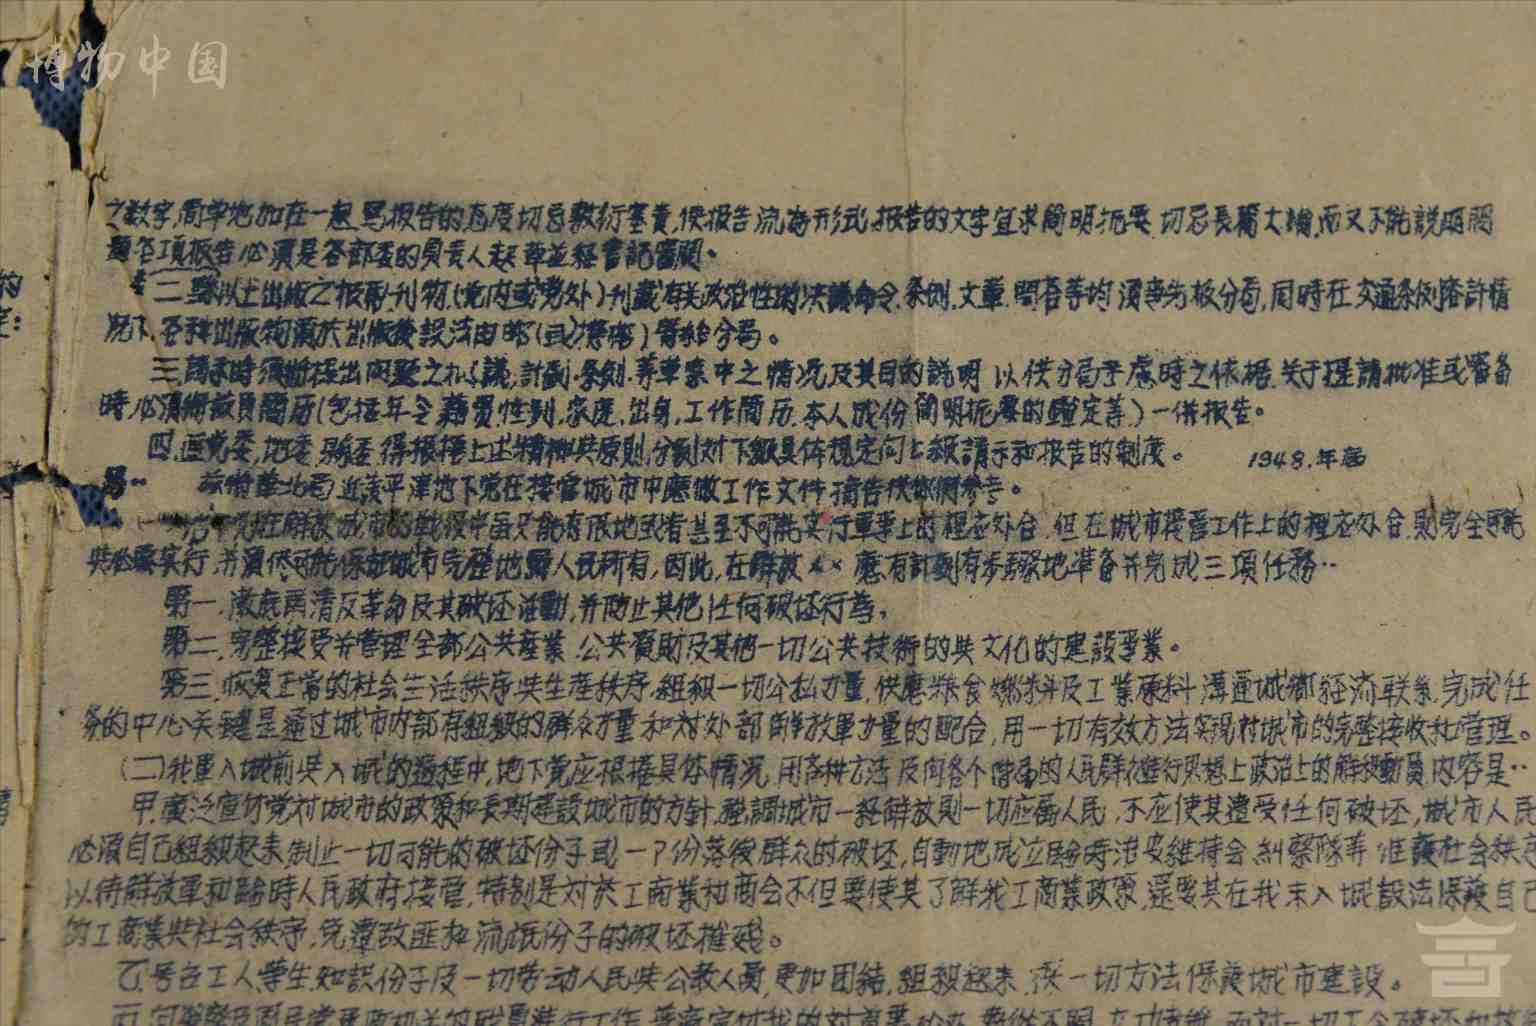 博物中国
之数字,简单地加在一起,写报告的态度切忌敷衍塞責,使报告流为形式,报告的文字宜求简明扼要,切忌長篇大論,而又不能説明問
題各項报告必須是各部委的負責人起草並經書記審閲。
二、縣以上出版之报刊刊物(党内或党外)刊載有关政治性的决議命令,条例,文章,問答等均須事先报分局,同時在交通条例容許情
况下,各种出版物須於出版後設法由邮(或)寄給分局。
三,請示時須將提出问题之,計劃,条例,等草案中之情况及其目的説明 以供分局考慮時之依据,关于提請批准或審备
時必須將該員简历(包括年令籍貫,性别,家庭,出身,工作简历,本人成份简明扼要的鑑定等)一併报告。
四,区党委,地委,縣委,得根据上述精神與原則,分别对下級具体規定向上級請示和报告的制度。 1948.年
兹將華北局近
平津地下党在接管城市中應做工作文件摘告供你們参考。
地下党在解放城市的戰役中虽只能有限地或者甚至不可能实行軍事上的裡应外合,但在城市接管工作上的裡应外合,則完全可能
與必要实行,并須尽可能保証城市完整地歸人民所有,因此,在解放××應有計劃有步驟地準备并完成三項任務··
第一,澈底肃清反革命及其破坏活動,并防止其他任何破坏行為,
第二,完整接受并管理全部公共產業,公共資財及其他一切公共技術的與文化的建設事業。
第三,恢复正常的社会生活秩序與生產秩序,組織一切公私力量,供應粮食燃料及工業原料,溝通城鄉經济联系,完成任
務的中心关鍵是通过城市内部有組織的群众力量和对外部解放軍力量的配合,用一切有效方法实現对城市的完整接收和管理。
(二)我軍入城前與入城的過程中,地下党应根据具体情况,用各种方法,反向各个階層的人民群众進行思想上政治上的解釋動員,内容是··
甲.廣泛宣傳党对城市的政策和長期建設城市的方針,强調城市一經解放則一切应屬人民,不应使其遭受任何破坏,城市人民
必須自己組織起来制止一切可能的破坏份子或一部份落後群众的破坏,自動地成立臨時治安維持会,糾察隊等,維護社会秩序
以待解放軍和臨時人民政府接管,特别是对於工商業和商会不但要使其了解我工商業政策,還要其在我未入城設法保護自己
的工商業與社会秩序,免遭敌匪和流氓份子的破坏摧殘。
乙.号召工人學生,知識份子及一切劳动人民與公教人員,更加团結,組織起来,採一切方法保護城市建設。